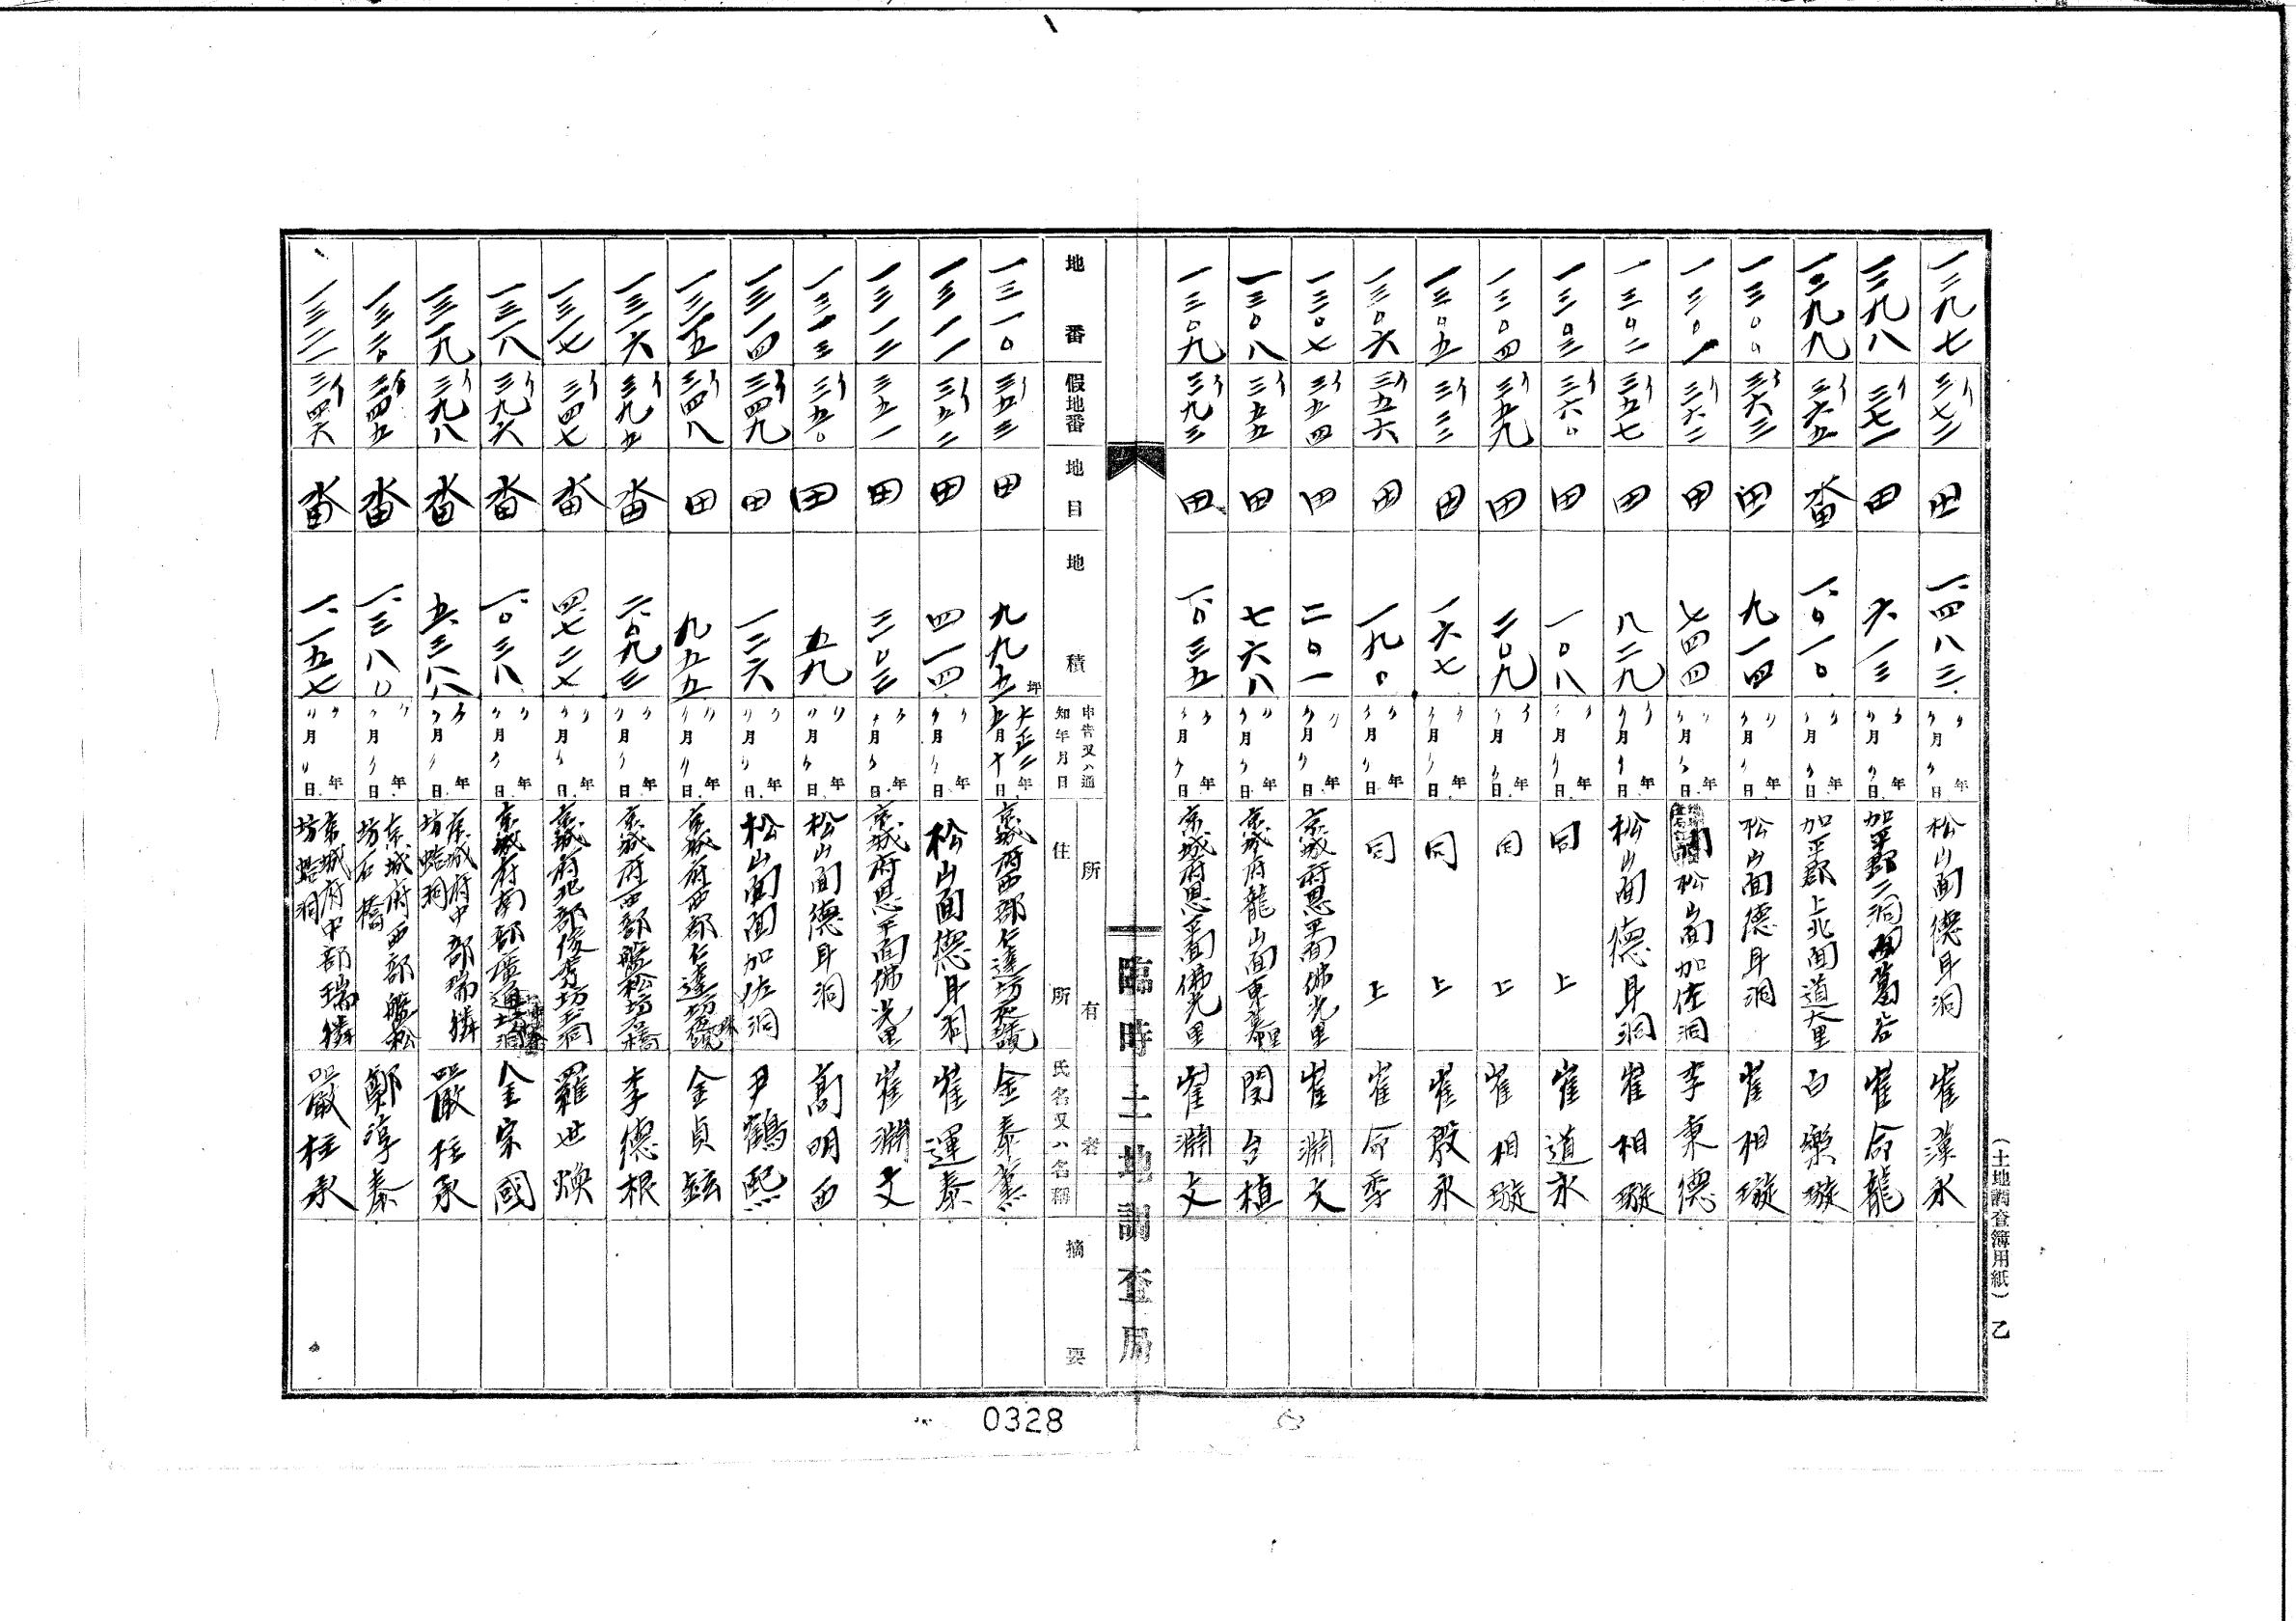 (土地調査簿用紙) 乙
一二九七 三七二 田 一、四八三 〃年〃月〃日 松山面德耳洞 崔漢永
一二九八 三七一 田 六一三 〃年〃月〃日 加平郡二洞面 崔命龍
一二九九 三六五 畓 一、〇一〇 〃年〃月〃日 加平郡上北面道大里 白樂璇
一三〇〇 三六三 田 九一四 〃年〃月〃日 松山面德耳洞 崔相璇
一三〇一 三六二 田 七四四 〃年〃月〃日 松山面加佐洞 李秉德
一三〇二 三五七 田 八二九 〃年〃月〃日 松山面德耳洞 崔相璇
一三〇三 三六〇 田 一〇八 〃年〃月〃日 同上 崔道永
一三〇四 三五九 田 二〇九 〃年〃月〃日 同上 崔相璇
一三〇五 田 一六七 〃年〃月〃日 同上 崔殷永
一三〇六 三五六 田 一九〇 〃年〃月〃日 同上 崔命季
一三〇七 三五四 田 二〇一 〃年〃月〃日 京城府恩平面佛光里 崔淵文
一三〇八 三五五 田 七六八 〃年〃月〃日 京城府龍山面東幕里 閔台植
一三〇九 三九三 田 一、〇三五 〃年〃月〃日 京城府恩平面佛光里 崔淵文
臨時土地調査局
地番 假地番 地目 地積 申告又ハ通知年月日 所有者 住所 氏名又ハ名稱 摘要
一三一〇 三五三 田 九九五坪 大正二年五月十日 京城府西部仁達坊 金泰熏
一三一一 三五二 田 四一四 〃年〃月〃日 松山面德耳洞 崔運泰
一三一二 三五一 田 三〇三 〃年〃月〃日 京城府恩平面佛光里 崔淵文
一三一三 三五〇 田 五九 〃年〃月〃日 松山面德耳洞 高明西
一三一四 三四九 田 一二六 〃年〃月〃日 松山面加佐洞 尹鶴熙
一三一五 三四八 田 九五五 〃年〃月〃日 京城府西部仁達坊 金貞鉉
一三一六 三九五 畓 二、〇九三 〃年〃月〃日 京城府西部盤松坊石橋 李德根
一三一七 三四七 畓 四、七二七 〃年〃月〃日 京城府北部俊秀坊玉洞 羅世煥
一三一八 三九六 畓 一、〇三八 〃年〃月〃日 京城府南部廣通坊 金宗國
一三一九 三九八 畓 五、三八八 〃年〃月〃日 京城府中部瑞麟坊蛤洞 嚴柱承
一三二〇 三四五 畓 一、三八〇 〃年〃月〃日 京城府西部盤松坊石橋 鄭淳泰
一三二一 三四六 畓 一、一五七 〃年〃月〃日 京城府中部瑞麟坊蛤洞 嚴柱承
0328